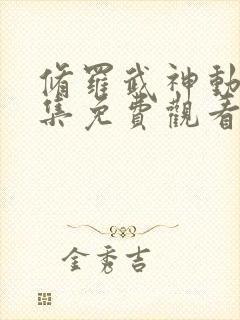 脩羅武神動
集免費觀看
金秀吉